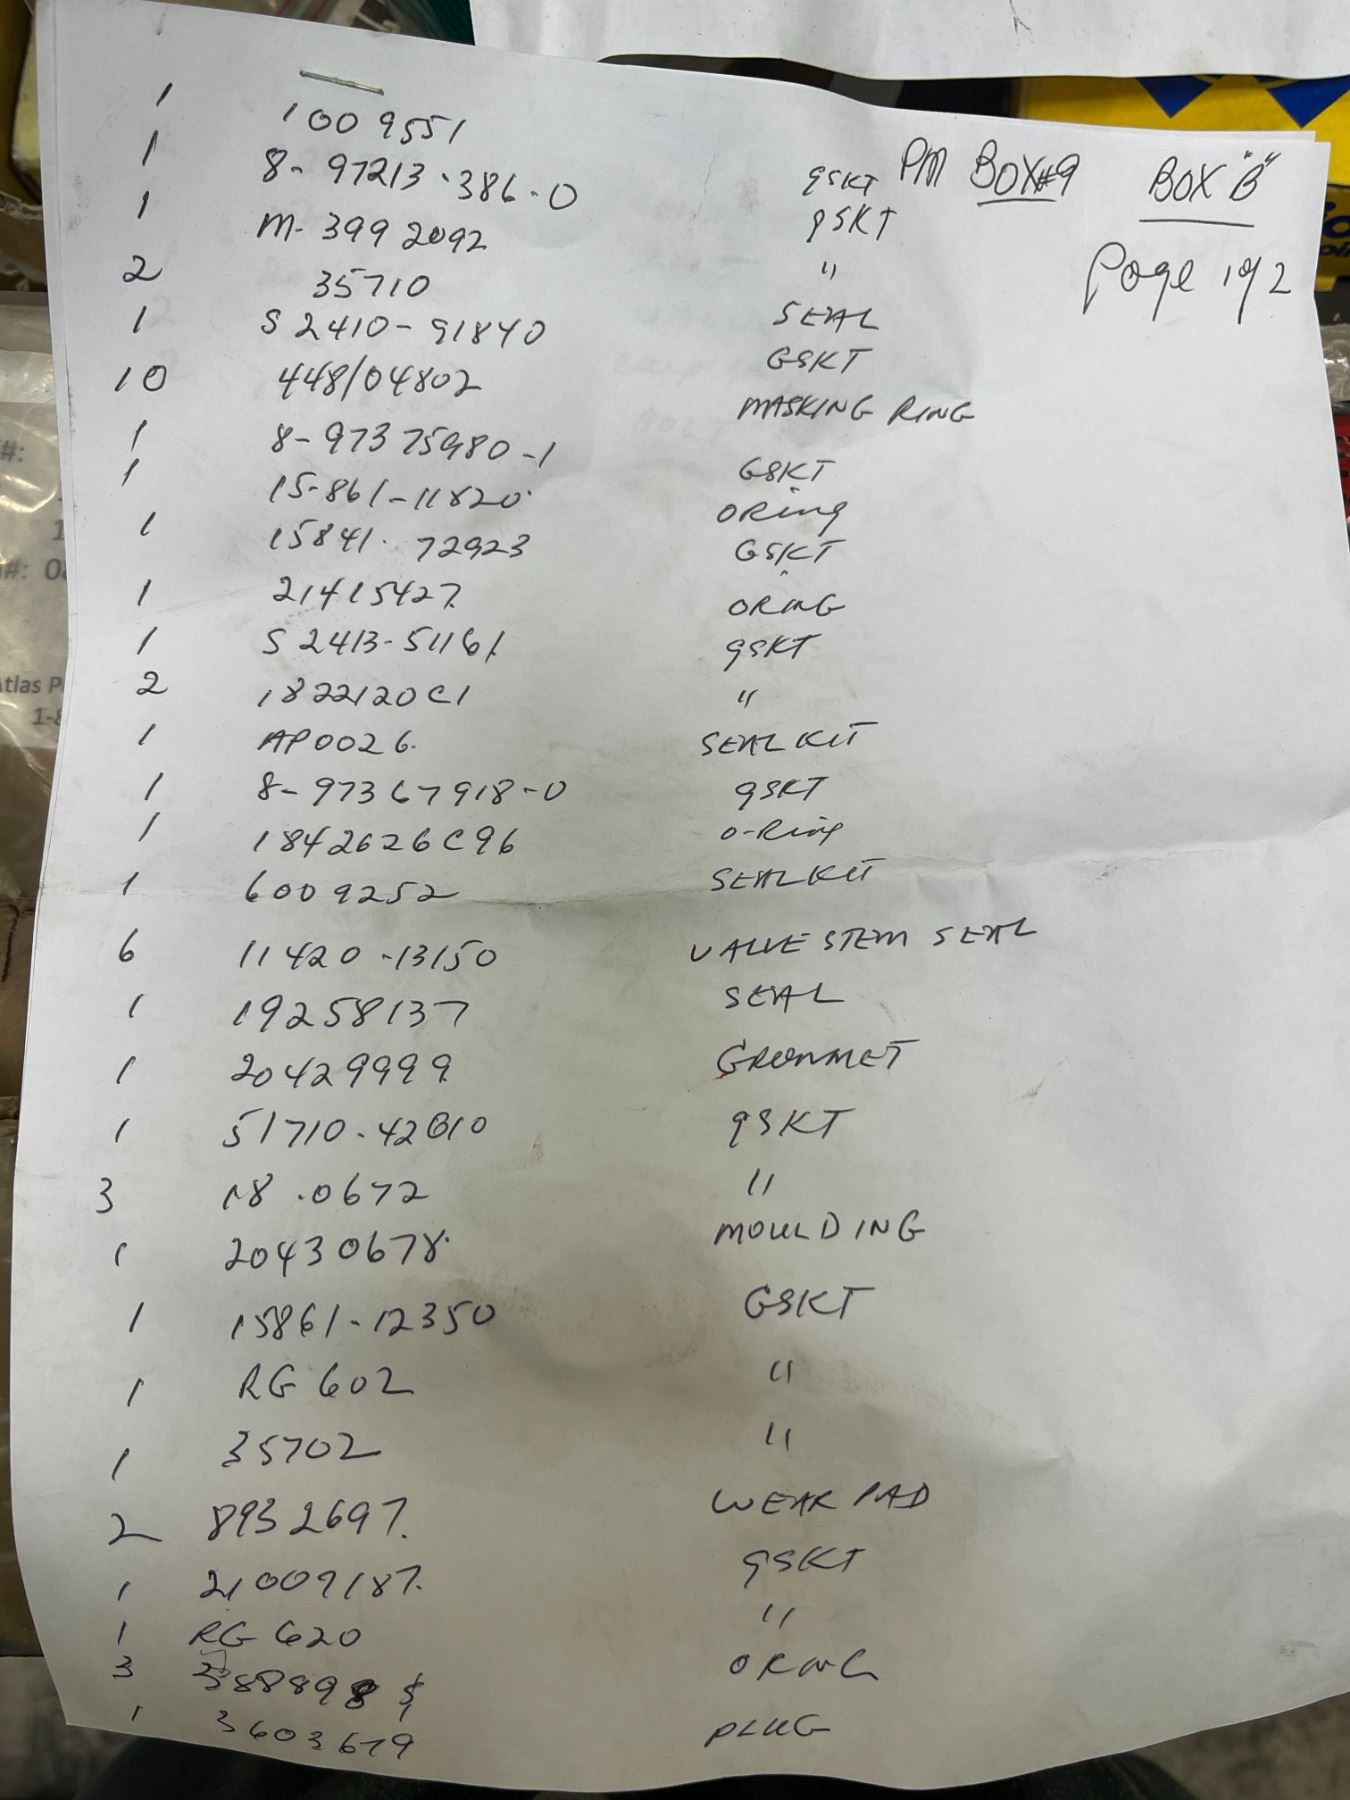 PM BOX#9 BOX "B"
Page 1 of 2
1 1009551 gSKT
1 8-97213-386-0 gSKT
1 M-3992092 "
2 35710 SEAL
1 S2410-91840 GSKT
10 448/04802 MASKING RING
1 8-97375980-1 GSKT
1 15-861-11820 ORing
1 15841-72923 GSKT
1 21415427 ORING
1 S2413-51161 gSKT
2 1822120C1 "
1 AP0026 SEAL KIT
1 8-97367918-0 gSKT
1 1842626C96 O-Ring
1 6009252 SEAL KIT
6 11420-13150 VALVE STEM SEAL
1 19258137 SEAL
1 20429999 GROMMET
1 51710-42B10 gSKT
3 18-0672 "
1 20430678 MOULDING
1 15861-12350 GSKT
1 RG 602 "
1 35702 "
2 8932697 WEAR PAD
1 21009187 gSKT
1 RG 620 "
3 ORING
1 3603679 PLUG
#:
#: 0
Atlas P
1-8